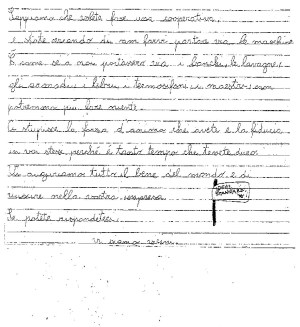 Sappiamo che volete fare una cooperativa
e state cercando di non farvi portare via le macchine
È come se a noi portassero via i banchi, le lavagne,
gli armadi, i libri, i termosifoni, i maestri: non
potremmo più fare niente.
Ci stupisce la forza d'animo che avete e la fiducia
in voi stessi perché è tanto tempo che tenete duro.
Vi auguriamo tutto il bene del mondo e di
riuscire nella vostra impresa.
Se potete rispondeteci.
Vi siamo vicini